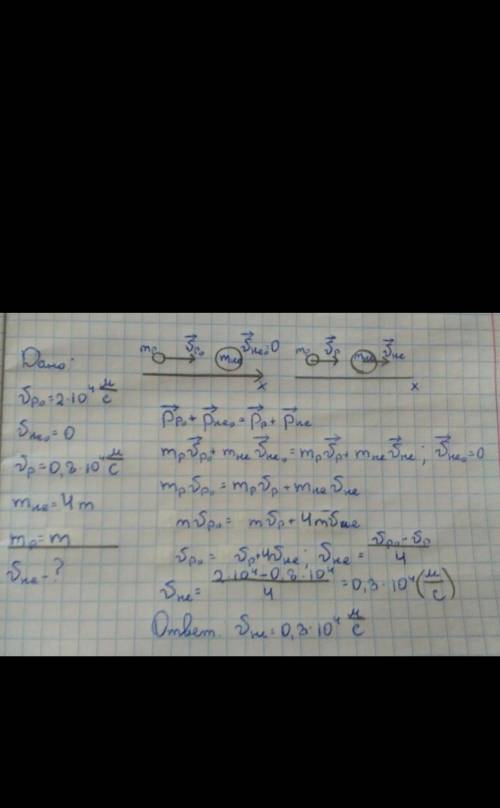 Дано:
υp₀=2·10⁴ м/с
υHe₀=0
υp=0,8·10⁴ м/с
mHe=4m
mp=m
υHe-?
mp υ⃗p₀ mHe υ⃗He₀=0 mp υ⃗p mHe υ⃗He
x x
p⃗p₀+p⃗He₀=p⃗p+p⃗He
mpυ⃗p₀+mHeυ⃗He₀=mpυ⃗p+mHeυ⃗He; υ⃗He₀=0
mpυp₀=mpυp+mHeυHe
mυp₀= mυp+4mυHe
υp₀= υp+4υHe; υHe=(υp₀-υp)/4
υHe=(2·10⁴-0,8·10⁴)/4=0,3·10⁴(м/с)
Ответ. υHe=0,3·10⁴ м/с